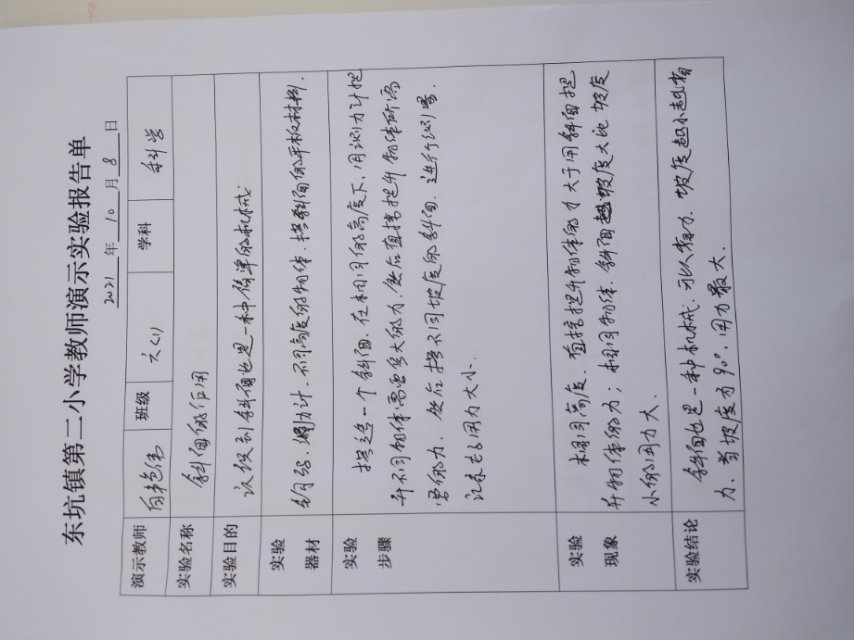 东坑镇第二小学教师演示实验报告单
2021 年 10 月 8 日
演示教师 班级 六(1) 学科 科学
实验名称 斜面的作用
实验目的 认识到斜面也是一种简单的机械.
实验器材 钩码、测力计、不同高度的物体、搭斜面的平板材料.
实验步骤
搭造一个斜面. 在相同的高度下, 用测力计把
升不同物体需要多大的力. 然后直接提升物体所需
要的力. 然后搭不同坡度的斜面. 进行测量.
记录在用力大小.
实验现象
相同高度. 直接提升物体的力大于用斜面提
升物体的力; 相同物体. 斜面坡度大比坡度
小的用力大.
实验结论
斜面也是一种机械. 可以省力. 坡度越小越省
力. 当坡度为90°, 用力最大.